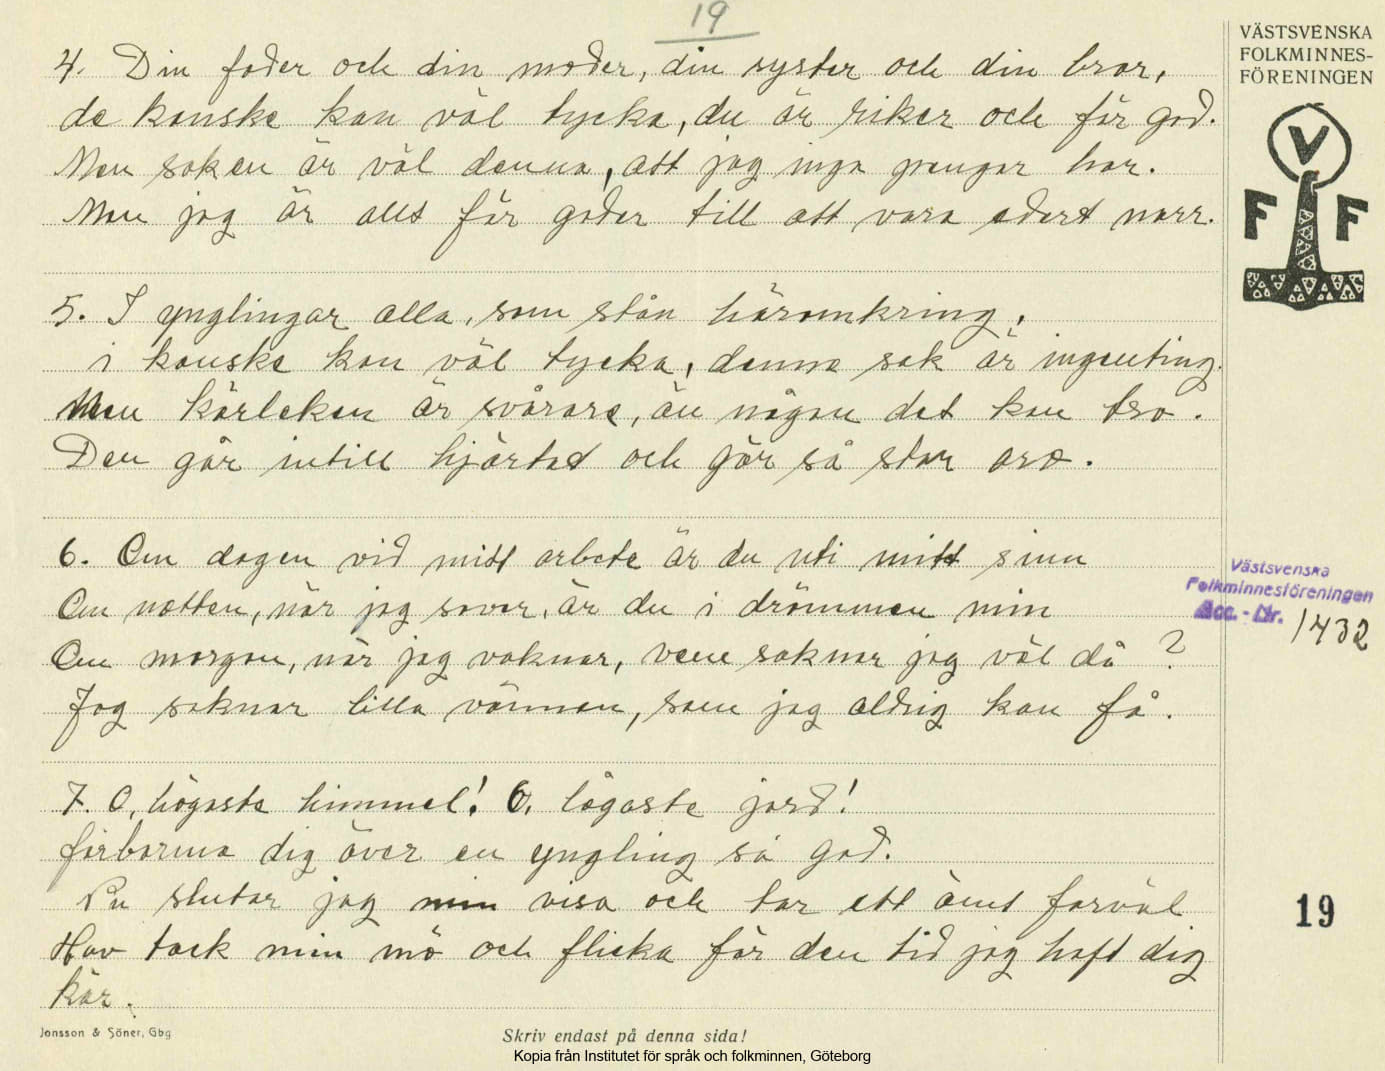 19
4. Din fader och din moder, din syster och din bror,
de kanske kan väl tycka, du är riker och för god.
Men saken är väl denna, att jag inga pengar har.
Men jag är allt för goder till att vara edert narr.
5. I ynglingar alla, som stån häromkring,
i kanske kan väl tycka, denna sak är ingenting.
Men kärleken är svårare, än någon det kan tro.
Den går intill hjärtat och gör så stor oro.
6. Om dagen vid mitt arbete är du uti mitt sinn
Om natten, när jag sover, är du i drömmen min
Om morgon, när jag vaknar, vem saknar jag väl då ?
Jag saknar lilla vännen, som jag aldrig kan få.
7. O, högaste himmel! O, lägaste jord!
förbarma dig över en yngling så god.
Nu slutar jag min visa och tar ett ömt farväl
Hav tack min mö och flicka för den tid jag haft dig
kär.
VÄSTSVENSKA
FOLKMINNES-
FÖRENINGEN
V
F F
Västsvenska
Folkminnesföreningen
Acc. - Nr. 1432
19
Jonsson & Söner, Gbg
Skriv endast på denna sida!
Kopia från Institutet för språk och folkminnen, Göteborg